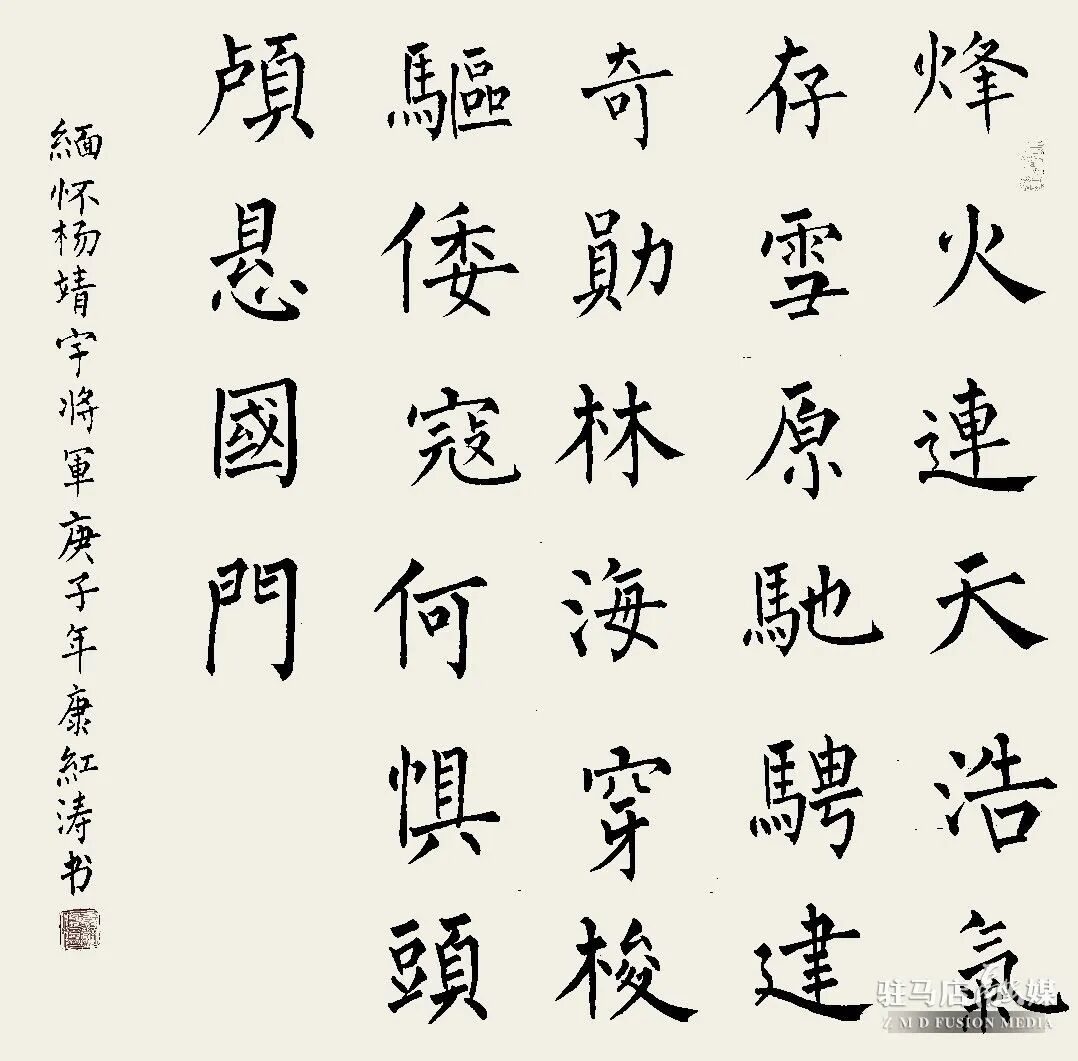 烽火連天浩氣
存雪原馳騁建
奇勛林海穿梭
驅倭寇何惧頭
顱悬國門
緬怀杨靖宇将軍庚子年康紅涛书
驻马店融媒
ZMD FUSION MEDIA